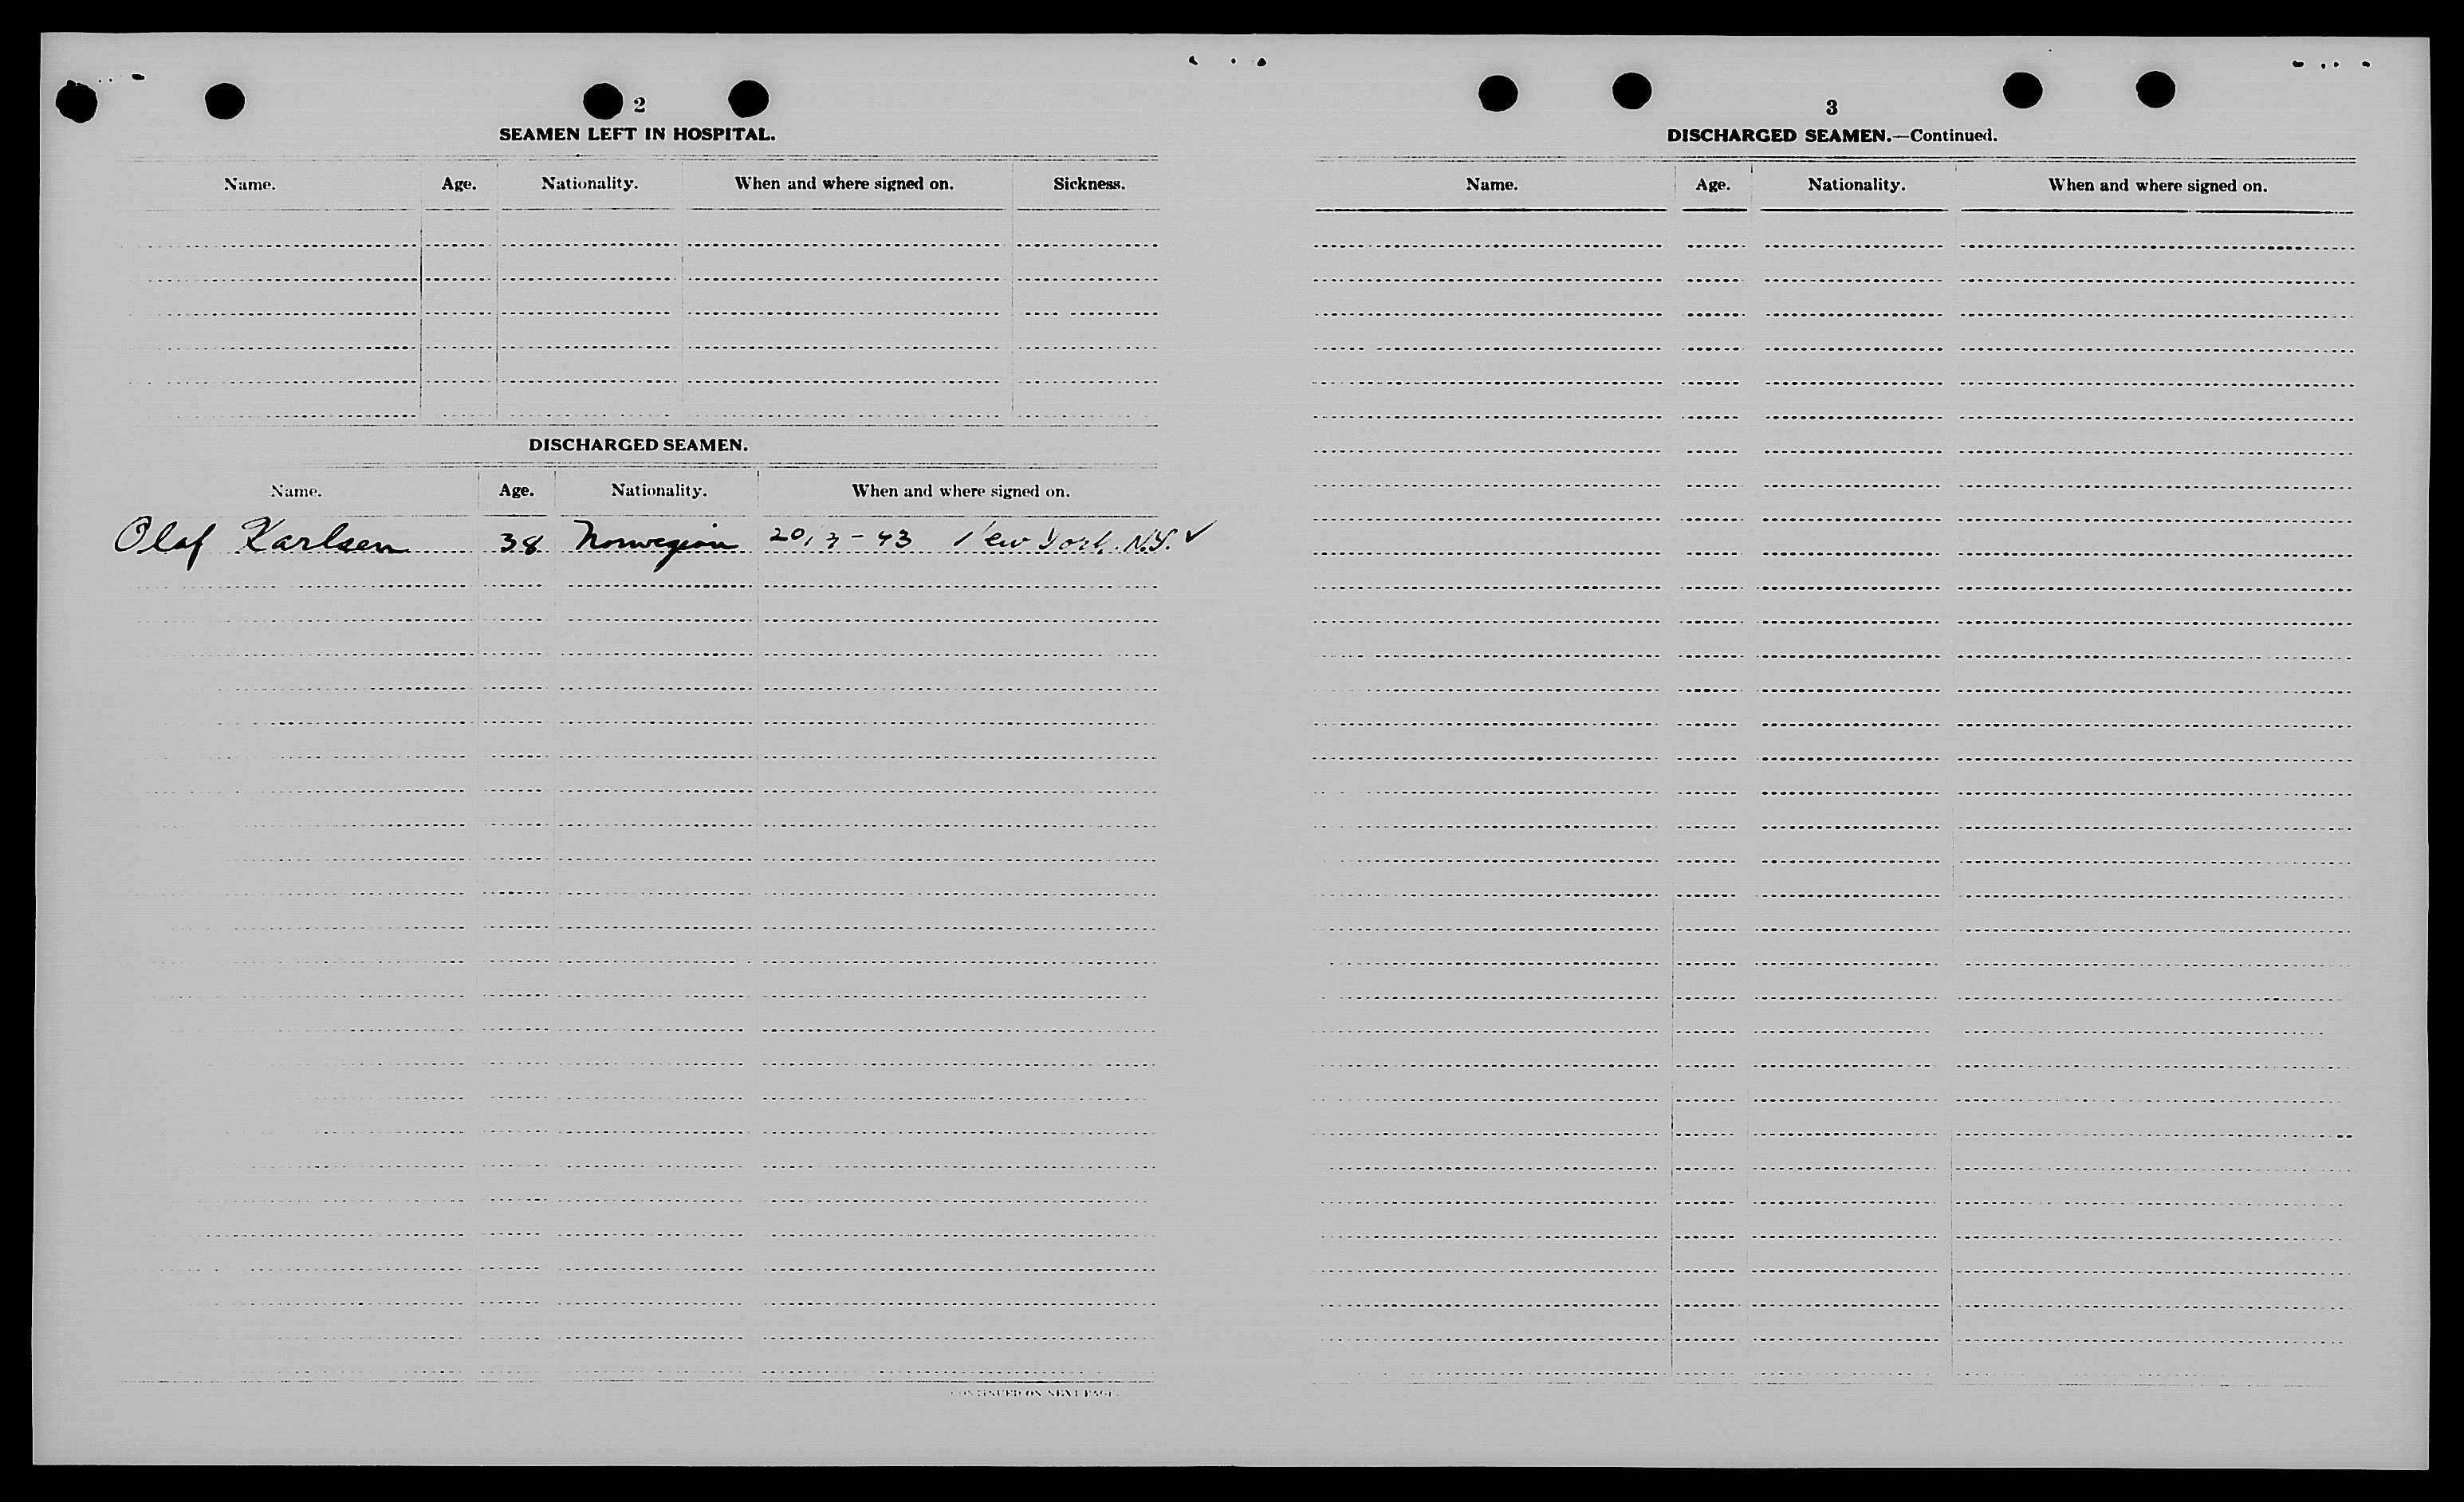 2
SEAMEN LEFT IN HOSPITAL.
Name. Age. Nationality. When and where signed on. Sickness.
DISCHARGED SEAMEN.
Name. Age. Nationality. When and where signed on.
Olaf Karlsen 38 Norwegian 20/3-43 New York. N.Y. ✓
CONTINUED ON NEXT PAGE.
3
DISCHARGED SEAMEN.—Continued.
Name. Age. Nationality. When and where signed on.